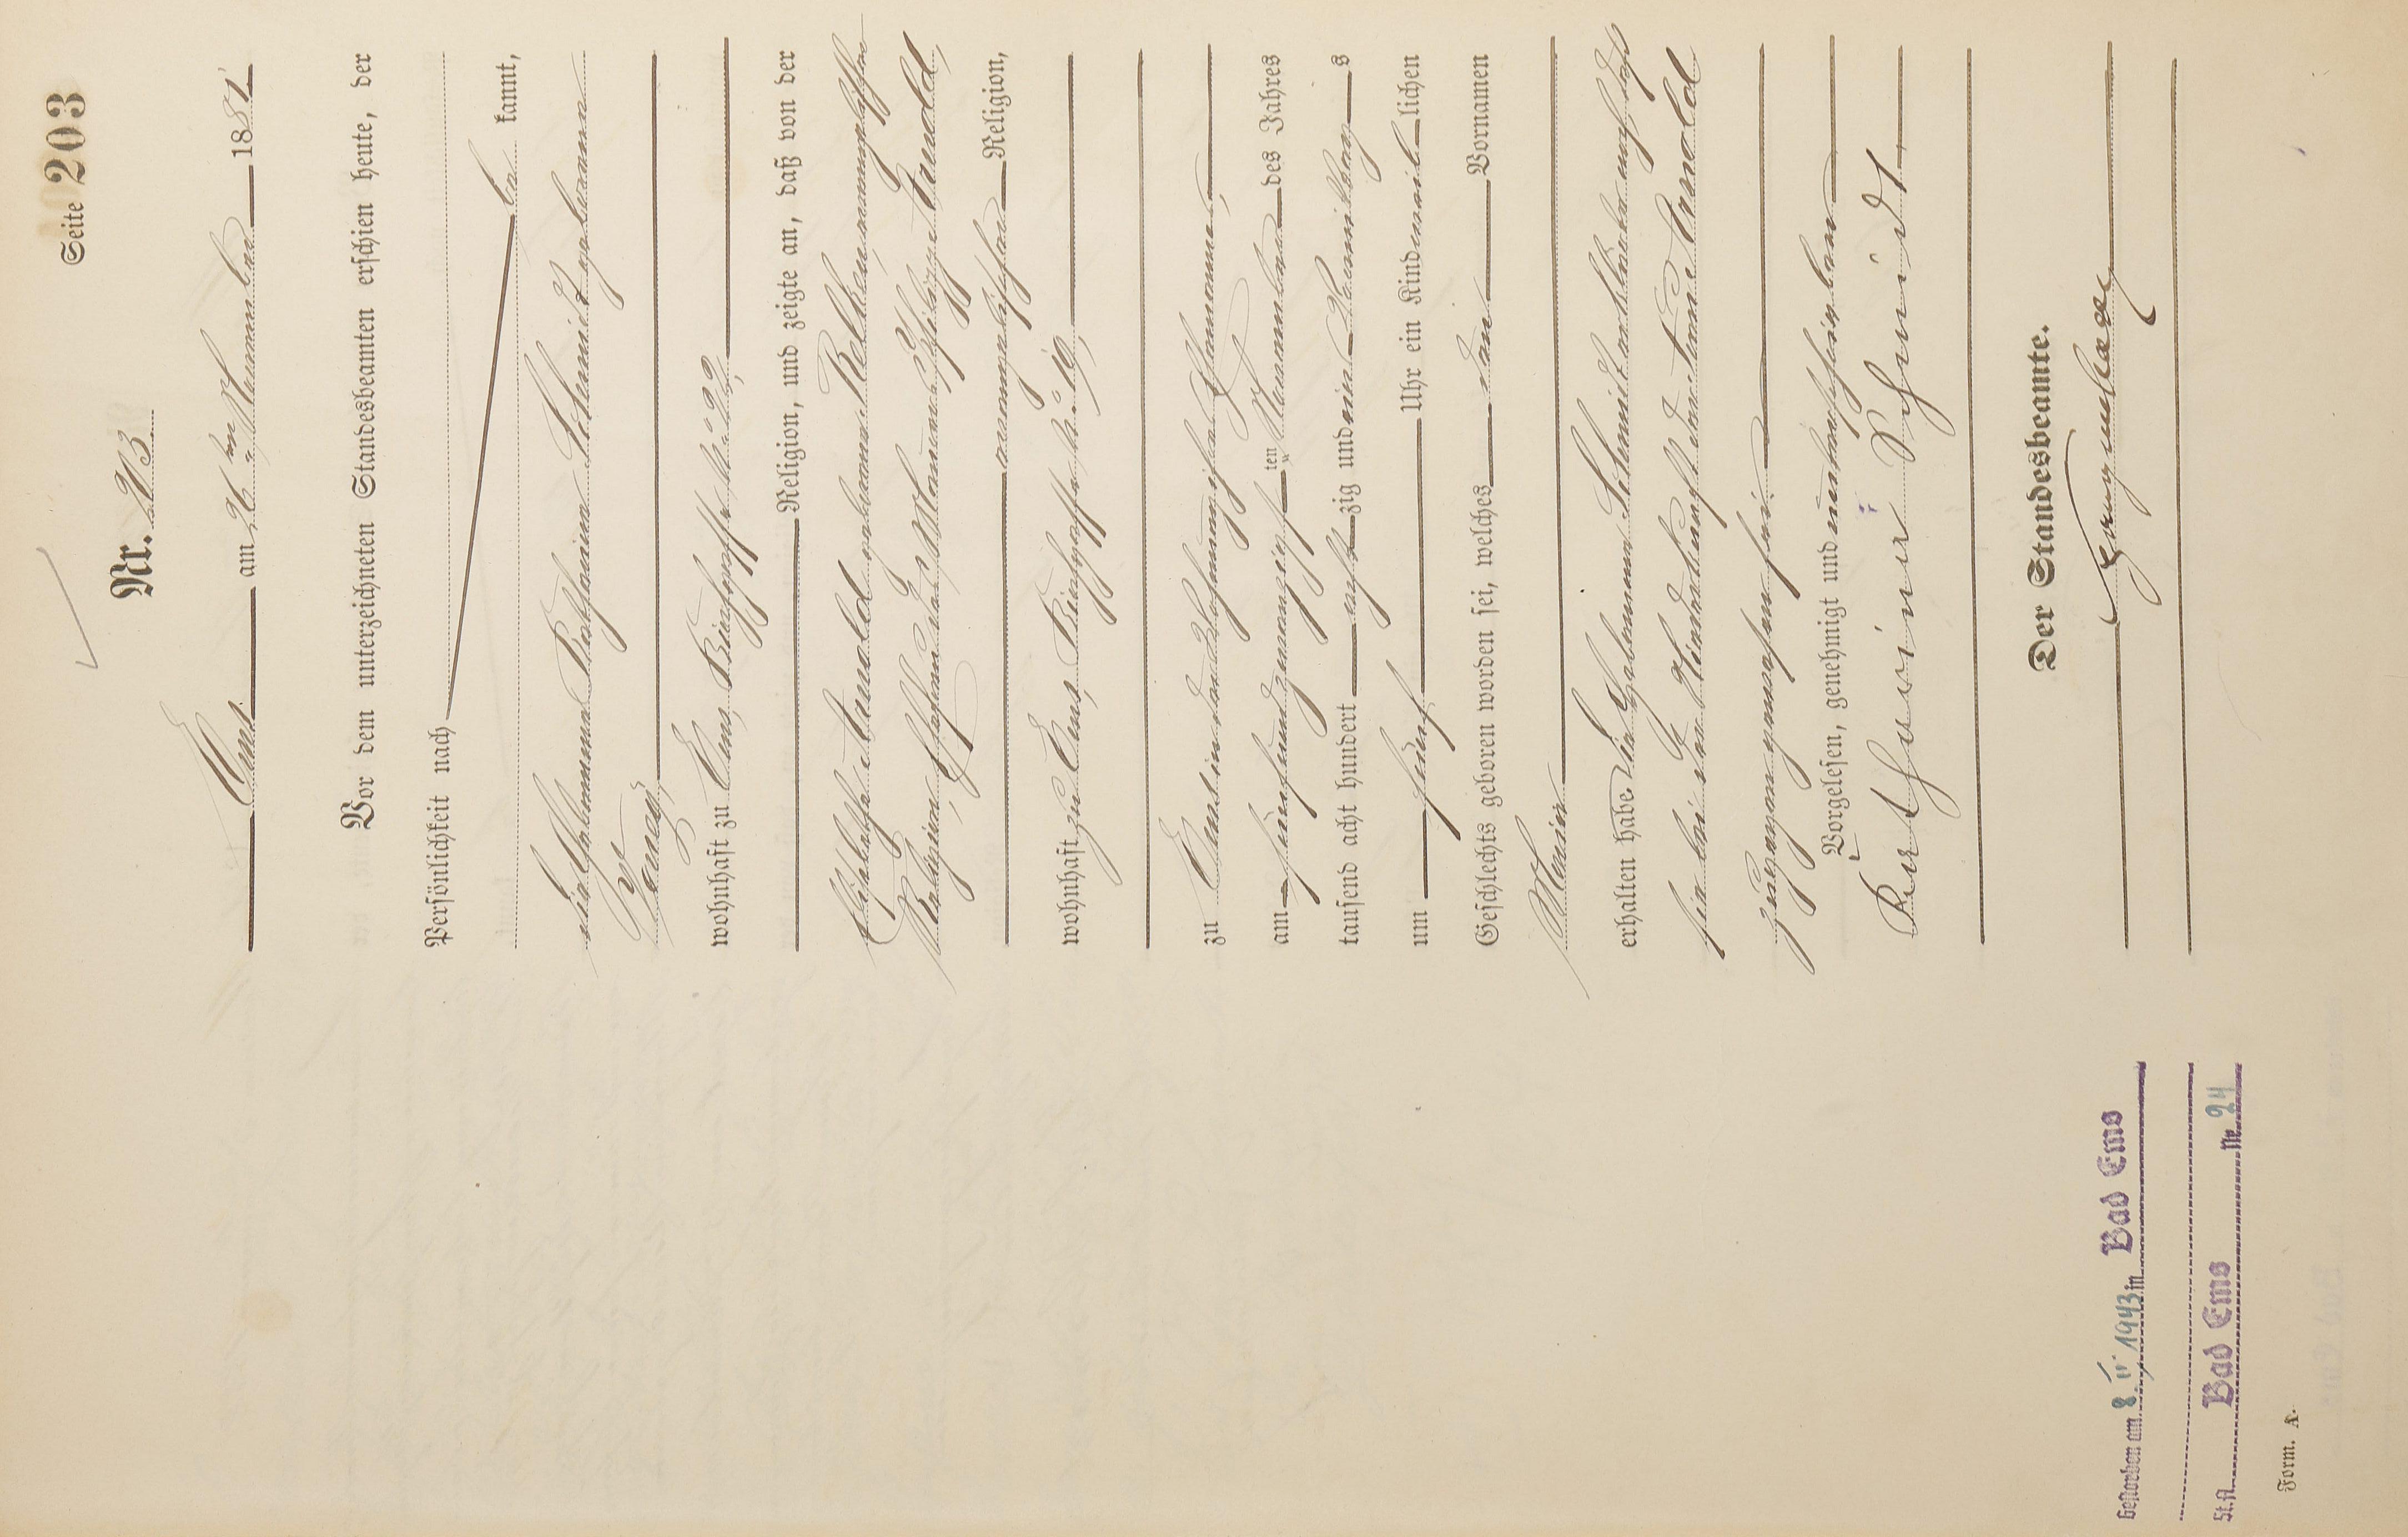 Seite 203
Nr. 203.
Ems am 26ten November 1881
Vor dem unterzeichneten Standesbeamten erschien heute, der
Persönlichkeit nach
be kannt,
die Hebamme Katharina Schmidt geborene
wohnhaft zu Ems,
Religion, und zeigte an, daß von der
Elisabethe Arnold geborene evangelischer
Religion, Ehefrau des Arnold,
evangelischer Religion,
wohnhaft zu Ems,
zu Ems in der Wohnung ihres Ehemannes,
am fünfundzwanzigsten November des Jahres
tausend acht hundert achtzig und ein Vormittags
um fünf Uhr ein Kind weiblichen
Geschlechts geboren worden sei, welches den Vornamen
Maria
erhalten habe. Die Hebamme Schmidt erklärte noch, daß
sie bei der Niederkunft der Arnold
zugegen gewesen sei.
Vorgelesen, genehmigt und unterschrieben
Katharina Schmidt
Der Standesbeamte.
Gestorben am 8. II. 1943 in Bad Ems
St.A. Bad Ems Nr. 24
Form. A.